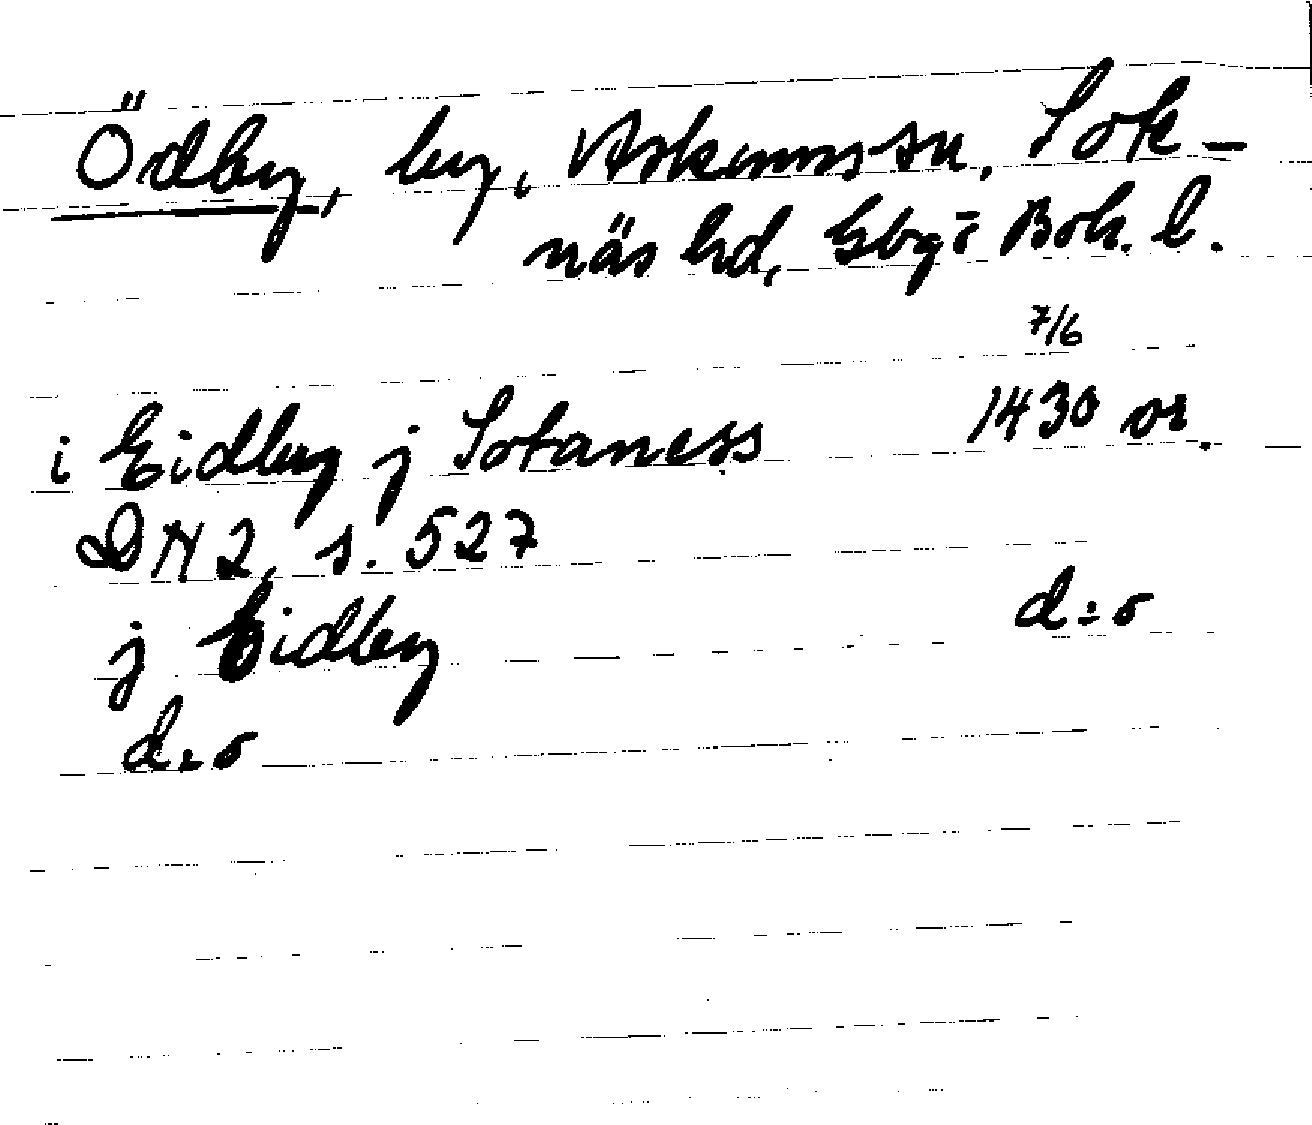 Ödby, by, Askums sn, Sote-
näs hd, Gbg o Boh. l.
7/6
i Eidby j Sotaness 1430 or.
DN 2, s. 527
j Eidby d:o
d:o